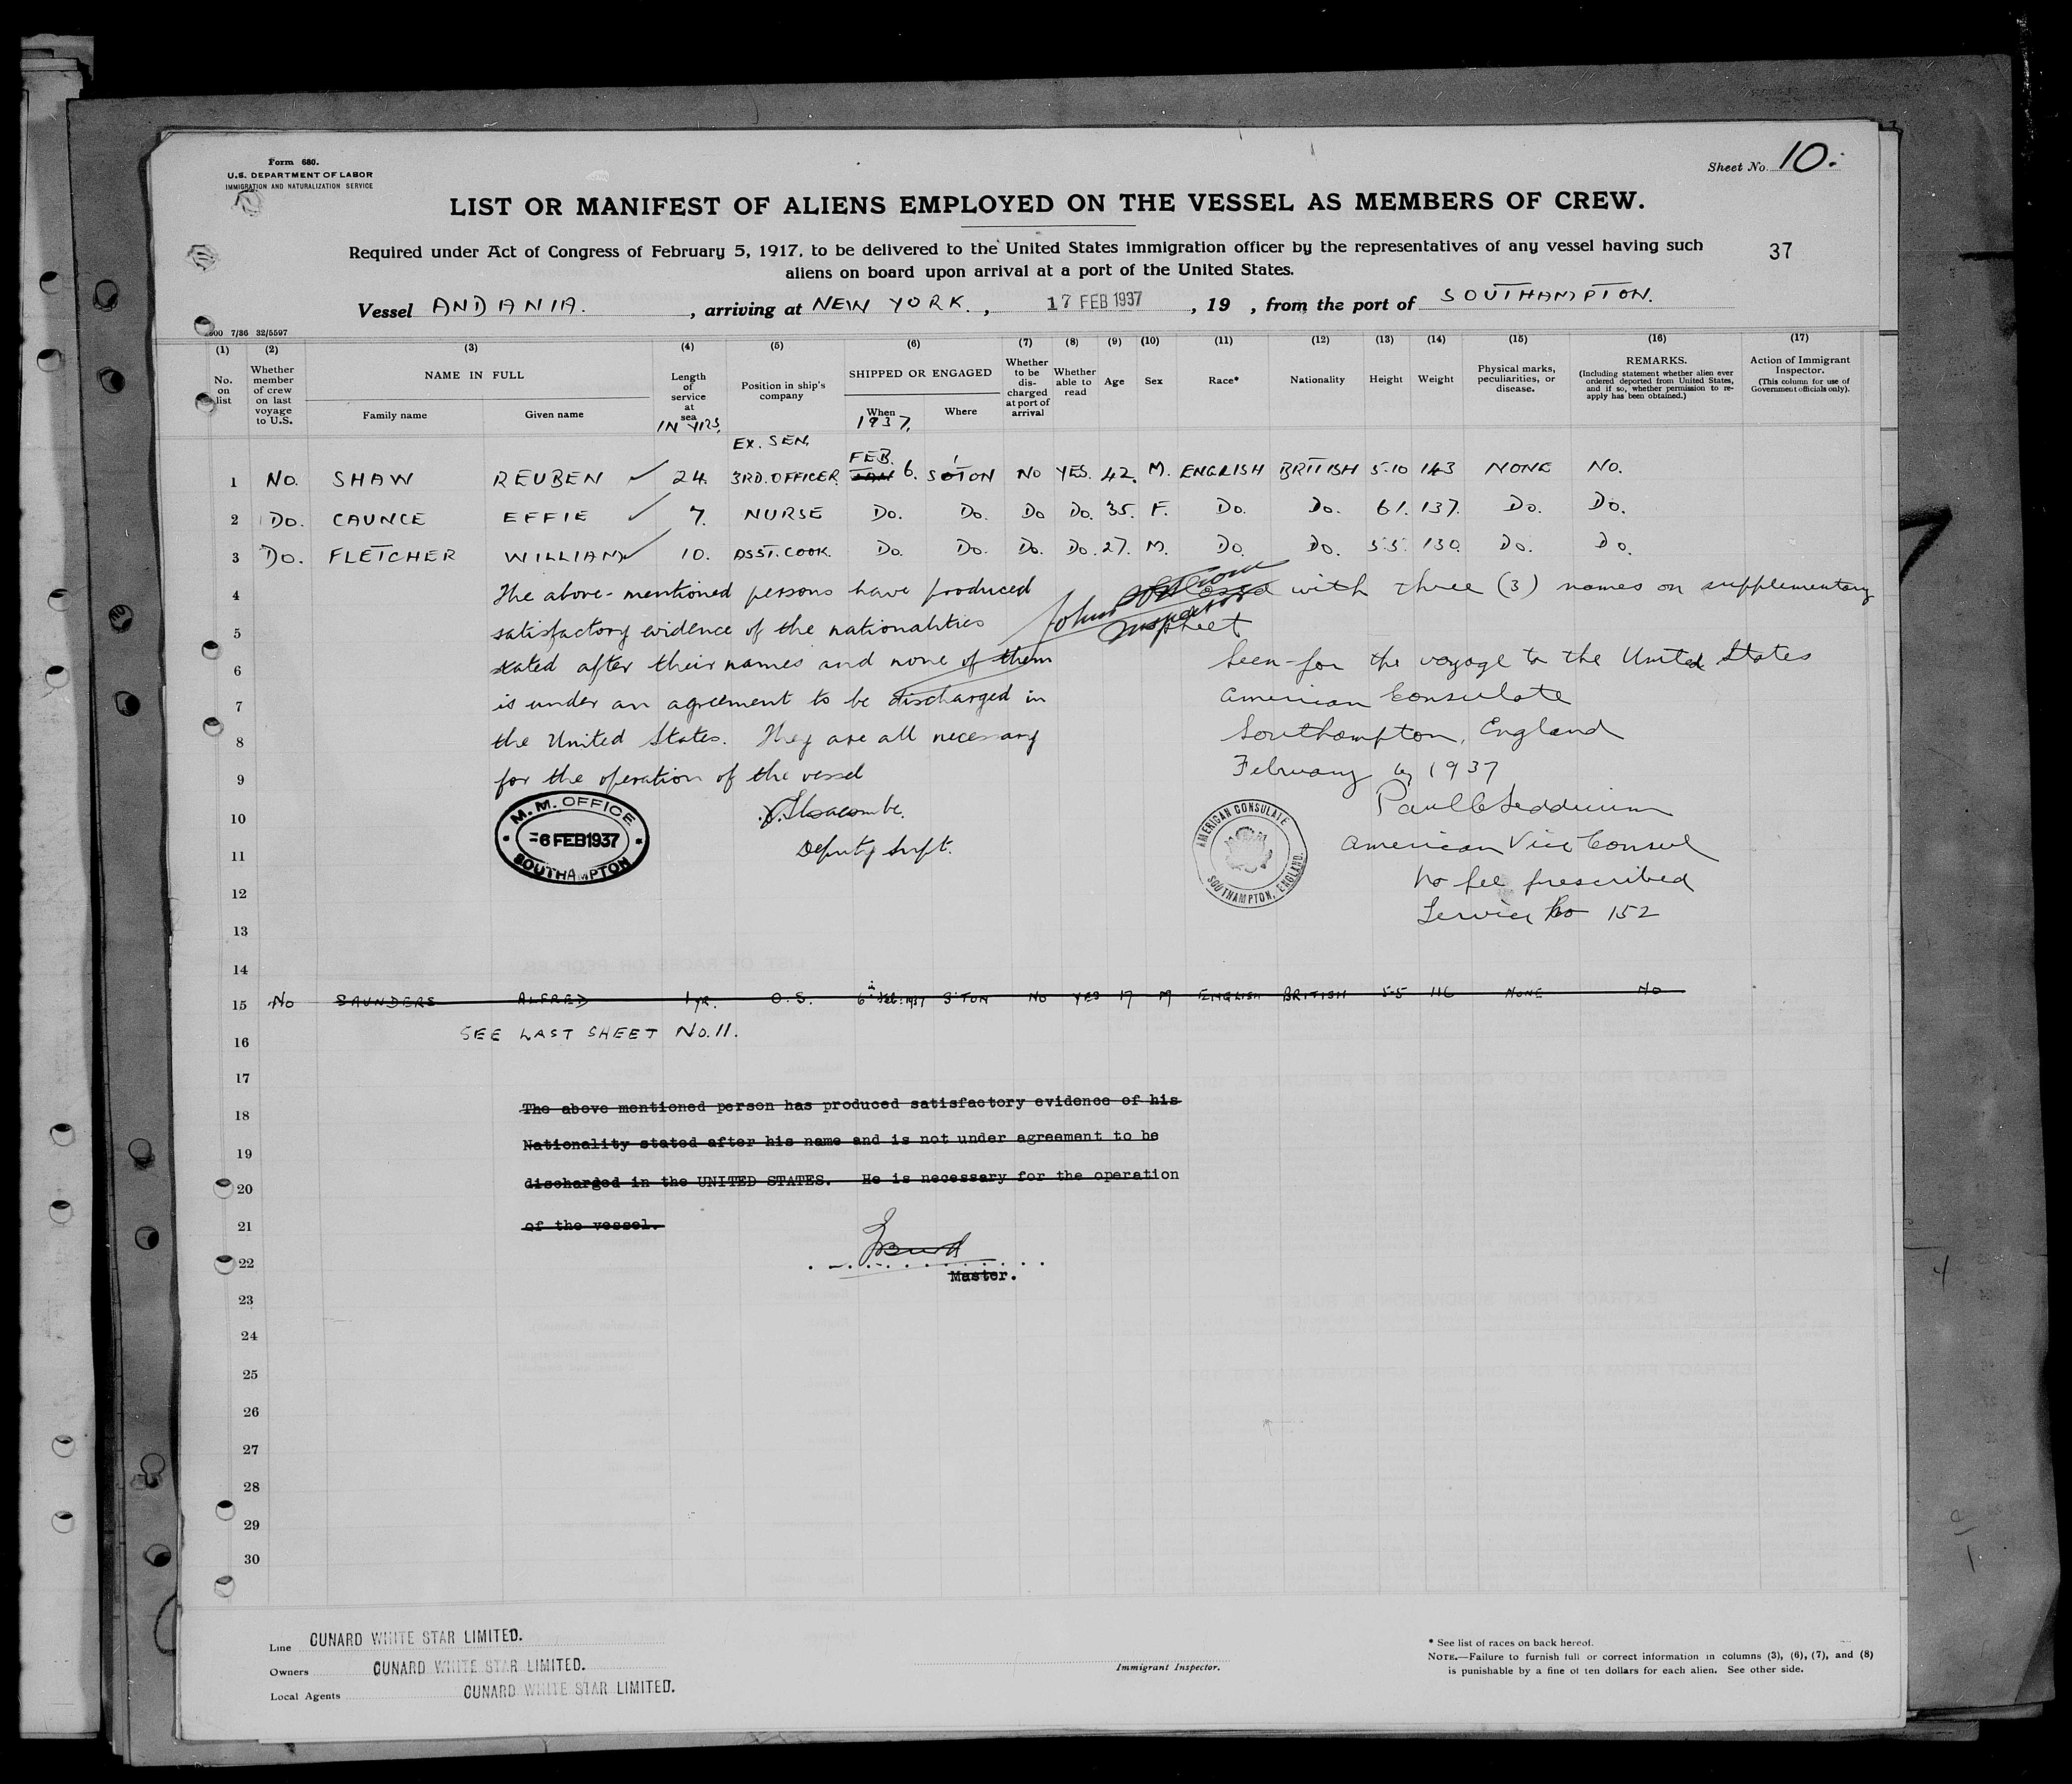 Form 680.
U.S. DEPARTMENT OF LABOR
IMMIGRATION AND NATURALIZATION SERVICE
Sheet No. 10.
LIST OR MANIFEST OF ALIENS EMPLOYED ON THE VESSEL AS MEMBERS OF CREW.
Required under Act of Congress of February 5, 1917, to be delivered to the United States immigration officer by the representatives of any vessel having such
aliens on board upon arrival at a port of the United States.
37
Vessel ANDANIA. , arriving at NEW YORK. , 17 FEB 1937 , 19 , from the port of SOUTHAMPTON.
7/36 32/5597
(1) (2) (3) (4) (5) (6) (7) (8) (9) (10) (11) (12) (13) (14) (15) (16) (17)
No. on list
Whether member of crew on last voyage to U.S.
NAME IN FULL
Family name
Given name
Length of service at sea IN YRS.
Position in ship's company
SHIPPED OR ENGAGED
When 1937.
Where
Whether to be discharged at port of arrival
Whether able to read
Age
Sex
Race*
Nationality
Height
Weight
Physical marks, peculiarities, or disease.
REMARKS.
(Including statement whether alien ever ordered deported from United States, and if so, whether permission to re-apply has been obtained.)
Action of Immigrant Inspector.
(This column for use of Government officials only).
EX. SEN.
FEB.
1 No. SHAW REUBEN 24. 3RD. OFFICER JAN 6. S'OTON NO YES. 42. M. ENGLISH BRITISH 5.10 143 NONE NO.
2 Do. CAUNCE EFFIE 7. NURSE Do. Do. Do Do. 35. F. Do. Do. 61. 137. Do. Do.
3 Do. FLETCHER WILLIAM 10. ASST. COOK. Do. Do. Do. Do. 27. M. Do. Do. 5.5. 130. Do. Do.
4 The above-mentioned persons have produced with three (3) names on supplementary
5 satisfactory evidence of the nationalities John Inspector sheet
6 stated after their names and none of them Seen-for the voyage to the United States
7 is under an agreement to be discharged in American Consulate
8 the United States. They are all necessary Southampton, England
9 for the operation of the vessel February 6, 1937
M.M. OFFICE
-6 FEB 1937
SOUTHAMPTON
AMERICAN CONSULATE
SOUTHAMPTON, ENGLAND.
10
11 Deputy Supt. American Vice Consul
12 No fee prescribed
13 Service No 152
14
15 No SAUNDERS ALFRED 1 yr. O.S. 6th Feb. 1937 S'TON NO YES 17 M ENGLISH BRITISH 5-5 116 NONE NO
16 SEE LAST SHEET No. 11.
17
18 The above mentioned person has produced satisfactory evidence of his
19 Nationality stated after his name and is not under agreement to be
20 discharged in the UNITED STATES. He is necessary for the operation
21 of the vessel.
22
Master.
23
24
25
26
27
28
29
30
Line CUNARD WHITE STAR LIMITED.
Owners CUNARD WHITE STAR LIMITED.
Local Agents CUNARD WHITE STAR LIMITED.
Immigrant Inspector.
* See list of races on back hereof.
NOTE.—Failure to furnish full or correct information in columns (3), (6), (7), and (8)
is punishable by a fine of ten dollars for each alien. See other side.